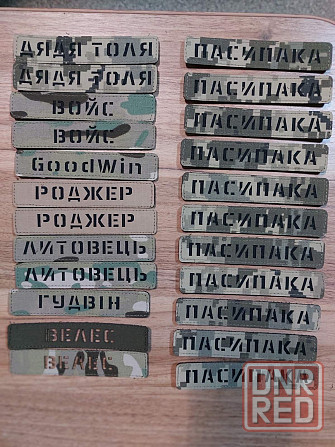 ДЯДЯ ТОЛЯ
ДЯДЯ ТОЛЯ
ВОЙС
ВОЙС
GoodWin
РОДЖЕР
РОДЖЕР
ЛИТОВЕЦЬ
ЛИТОВЕЦЬ
ГУДВІН
ВЕЛЕС
ВЕЛЕС
ПАСИПАКА
ПАСИПАКА
ПАСИПАКА
ПАСИПАКА
ПАСИПАКА
ПАСИПАКА
ПАСИПАКА
ПАСИПАКА
ПАСИПАКА
ПАСИПАКА
ПАСИПАКА
DNR
RED